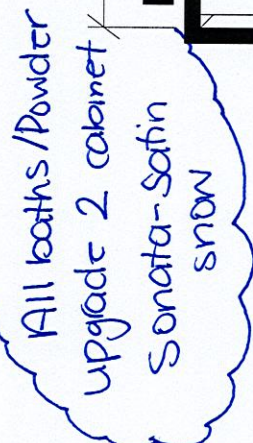 All baths/Powder
upgrade 2 cabinet
Sonata-Satin
snow